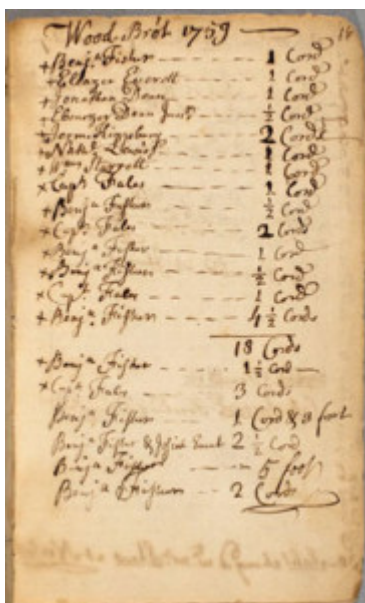 Wood Brôt 1759 —
+ Benjᵃ Fisher — — — 1 Cord
+ Eliazer Everett — — 1 Cord
+ Jonathan Dean — — 1 Cord
+ Ebenezer Dean Junʳ — ½ Cord
+ — — 2 Cords
+ Nathˡ Lewis — — 1 Cord
+ Wᵐ Starrett — — — 1 Cord
x Capᵗ Fales — — — 1 Cord
+ Benjᵃ Fisher — — — ½ Cord
x Capᵗ Fales — — — 2 Cords
+ Benjᵃ Fisher — — — 1 Cord
+ Benjᵃ Fisher — — — ½ Cord
x Capᵗ Fales — — — 1 Cord
+ Benjᵃ Fisher — — — 4 ½ Cords
18 Cords
+ Benjᵃ Fisher — — — 1 ½ Cord —
x Capᵗ Fales — — — 3 Cords
Benjᵃ Fisher 1 Cord & 3 foot
Benjᵃ Fisher & 2 ½ Cord
Benjᵃ Fisher — — 5 foot
Benjᵃ Fisher — — 2 Cords